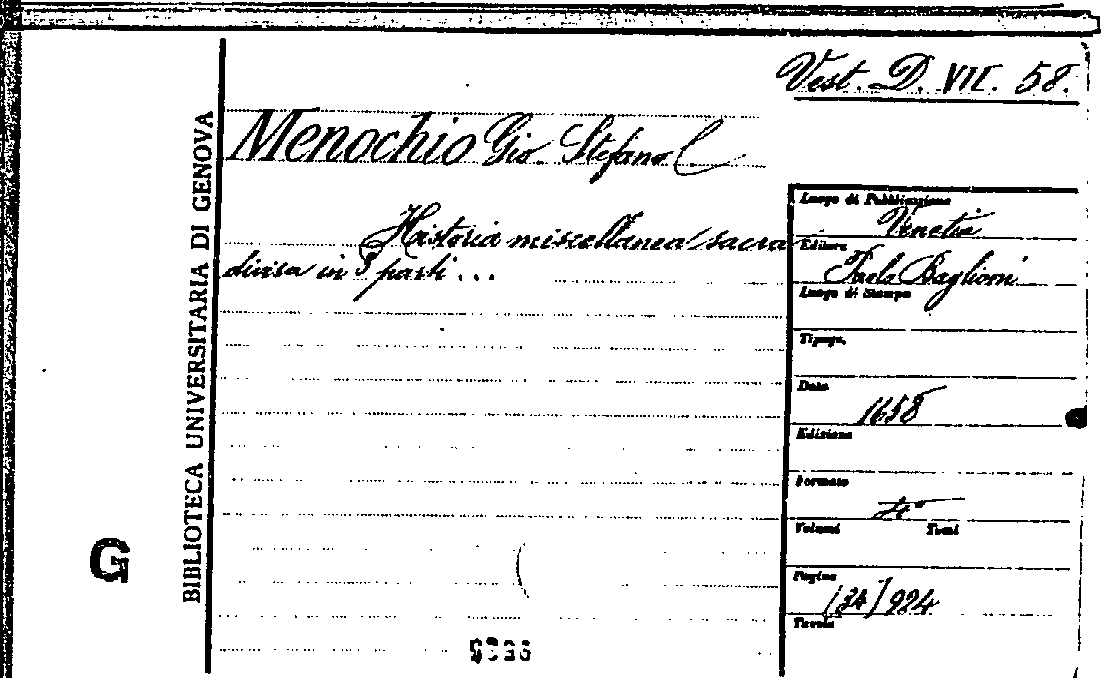 Vest. D. VII. 58.
Menochio Gio. Stefano
Historia miscellanea sacra
divisa in 5 parti ...
BIBLIOTECA UNIVERSITARIA DI GENOVA
G
Luogo di Pubblicazione
Venetia
Editore
Paolo Baglioni
Luogo di Stampa
Tipogr.
Data
1658
Edizione
Formato
4°
Volumi Tomi
Pagine
/34/ 924
Tavole